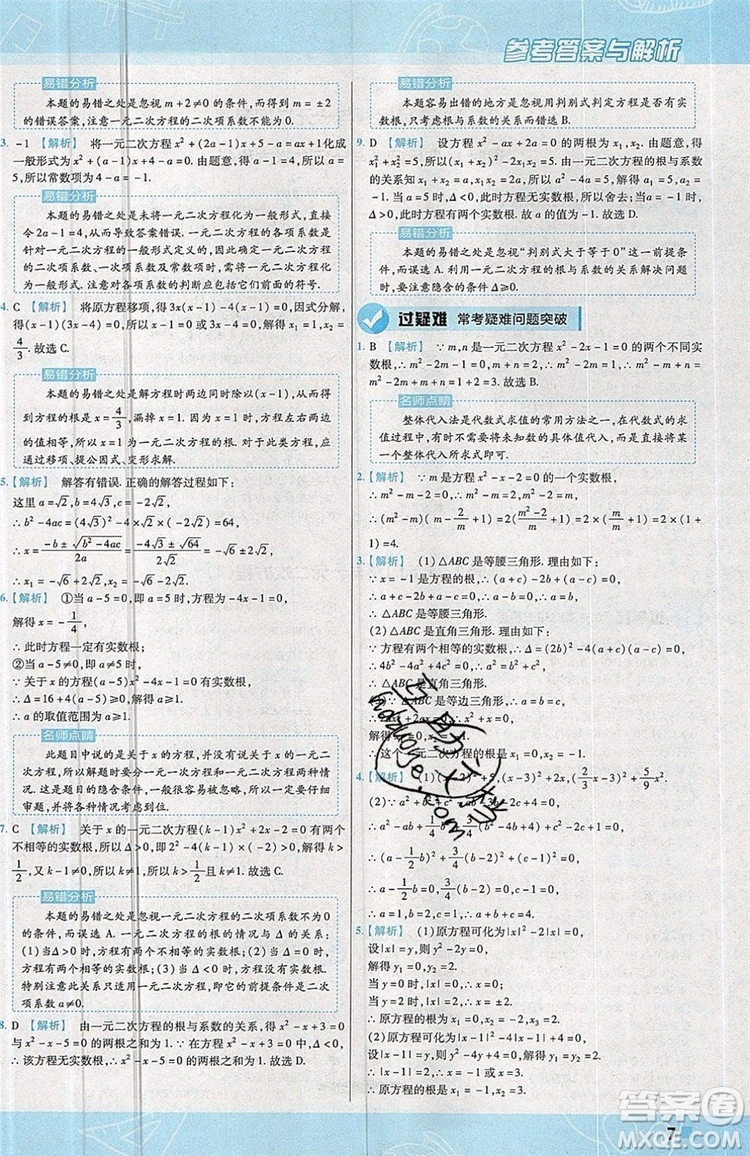 参考答案与解析
易错分析
本题的易错之处是忽视 m+2≠0 的条件,而得出 m=±2
的错误答案,注意一元二次方程的二次项系数不能为 0.
3. -1 【解析】 将一元二次方程 x²+(2a-1)x+5-a=ax+1 化成
一般形式为 x²+(a-1)x+4-a=0. 由题意,得 a-1=4,所以 a=
5,所以常数项为 4-a=-1.
易错分析
本题的易错之处是未将一元二次方程化为一般形式,直接
令 2a-1=4,从而导致答案错误. 一元二次方程的各项系数是
针对一元二次方程的一般形式定义的,因此要判断一元二次方程
的二次项系数、一次项系数及常数项时,需先将方程化为一般形
式. 注意方程各项系数的判断应包括它们的符号.
4. C 【解析】 将原方程移项,得 3x(x-1)-4(x-1)=0,因式分解,
得(x-1)(3x-4)=0,∴ x-1=0 或 3x-4=0,解得 x₁=1,x₂=
4/3. 故选 C.
易错分析
本题的易错之处是解方程时两边同时除以(x-1),从而
得到方程的根为 x=4/3,漏掉 x=1. 只有当确定方程两边
的值相等,且不为 0 时,才可直接约去. 对于此类方程,应
通过移项、提公因式、变形求解.
5. 【解析】 解答有错误. 正确的解答过程如下:
这里 a=√2,b=4√3,c=-2√2,
∴ b²-4ac=(4√3)²-4×√2×(-2√2)=64,
∴ x=(-b±√(b²-4ac))/2a=(-4√3±8)/2√2=-√6±2√2,
∴ x₁=-√6+2√2,x₂=-√6-2√2.
6. 【解析】 ①当 a-5=0,即 a=5 时,方程变为 -4x-1=0,
解得 x=-1/4,
∴ 此时方程一定有实数根;
②当 a-5≠0,即 a≠5 时,
∵ 关于 x 的方程(a-5)x²-4x-1=0 有实数根,
∴ Δ=16+4(a-5)≥0,解得 a≥1.
∴ a 的取值范围为 a≥1.
名师点睛
此题目中说的是关于 x 的方程,并没有说关于 x 的一元
二次方程,因此解题时要分一元一次方程和一元二次方程两种情
况. 这种题目的隐含条件,很容易忽略,所以解题时一定要仔细
审题,并从多种角度考虑.
7. C 【解析】 关于 x 的一元二次方程(k-1)x²+2x-2=0 有两个
不相等的实数根,所以Δ=2²-4(k-1)×(-2)>0,解得 k>
1/2,又 k-1≠0,所以 k>1/2且 k≠1. 故选 C.
易错分析
本题的易错之处是忽视一元二次方程的二次项系数不为 0
的条件. 一元二次方程根的情况与判别式Δ的关系:
(1)当Δ>0 时,方程有两个不相等的实数根;(2)当Δ=0
时,方程有两个相等的实数根;(3)当Δ<0 时,方程没有实数根.
特别注意:当方程为一元二次方程时,即方程有两个实数根时,二
次项系数 a≠0.
8. D 【解析】 由一元二次方程的根与系数的关系,得 x²-x+3=0
与 x²-x-5=0 的两根之和为 1. ∵ 在方程 x²-x+3=0 中,Δ<0,
∴ 该方程无实数根,∴ x²-x-5=0 的两根之和为 1. 故选 D.
易错分析
本题容易出错的地方是忽视用判别式判定方程是否有实
数根,只考虑根与系数的关系而错选 B.
9. D 【解析】 设方程 x²-ax+2a=0 的两根为 x₁,x₂,由题意,得
x₁²+x₂²=5,∴ (x₁+x₂)²-2x₁x₂=5. 由一元二次方程的根与系数
的关系知 x₁+x₂=a,x₁x₂=2a,∴ a²-2×2a=5,解得 a₁=5,a₂=
-1. 当 a=5 时,Δ<0,方程无实数根,所以舍去;当 a=-1 时,
Δ>0,方程有两个实数根. 故 a=-1. 故选 D.
易错分析
本题的易错之处是忽视“判别式大于等于 0”这一前提条
件,而误选 A. 利用一元二次方程的根与系数的关系解决问题
时,要注意隐含的条件Δ≥0.
过疑难 常考疑难问题突破
1. B 【解析】 ∵ m,n 是一元二次方程 x²-2x-1=0 的两个不同实
数根,∴ m²-2m-1=0,m+n=2,∴ m²-2m=1,∴ m²-m+n=
m²-2m+m+n=1+2=3. 故选 B.
名师点睛
整体代入法是代数式求值的常用方法之一,在代数式的求
值过程中,有时只知道某个整体的值,此时可以直接将某一
个整体代入所求式即可.
2. 【解析】 ∵ m 是方程 x²-x-2=0 的一个实数根,
∴ m²-m-2=0,∴ m²-m=2,m²-2=m,
∴ (m²-m)(m-2/m+1)=(m²-m)((m²-2)/m+1)=2×(m/m+1)=4.
3. 【解析】 (1)△ABC 是等腰三角形. 理由如下:
∵ x=-1 是方程的根,
∴ a+c-2b+a-c=0,∴ a=b,
∴ △ABC 是等腰三角形.
(2)△ABC 是直角三角形. 理由如下:
∵ 方程有两个相等的实数根,∴ Δ=(2b)²-4(a+c)(a-c)=0,
∴ 4b²-4a²+4c²=0,∴ a²=b²+c²,
∴ △ABC 是直角三角形.
(3)∵ △ABC 是等边三角形,∴ a=b=c,
4. 【解析】
∴ a=1,b=2,c=4,∴ a+b+c=7.
5. 【解析】 (1)原方程可化为|x|²-2|x|=0,
设|x|=y,则 y²-2y=0.
解得 y₁=0,y₂=2.
当 y=0 时,|x|=0,∴ x=0;
当 y=2 时,|x|=2,∴ x=±2.
∴ 原方程的解是 x₁=0,x₂=-2,x₃=2.
(2)原方程可化为|x-1|²-4|x-1|+4=0.
设|x-1|=y,则 y²-4y+4=0,解得 y₁=y₂=2.
即|x-1|=2,∴ x=-1 或 x=3.
∴ 原方程的解是 x₁=-1,x₂=3.
7
答案圈
MXQE.COM